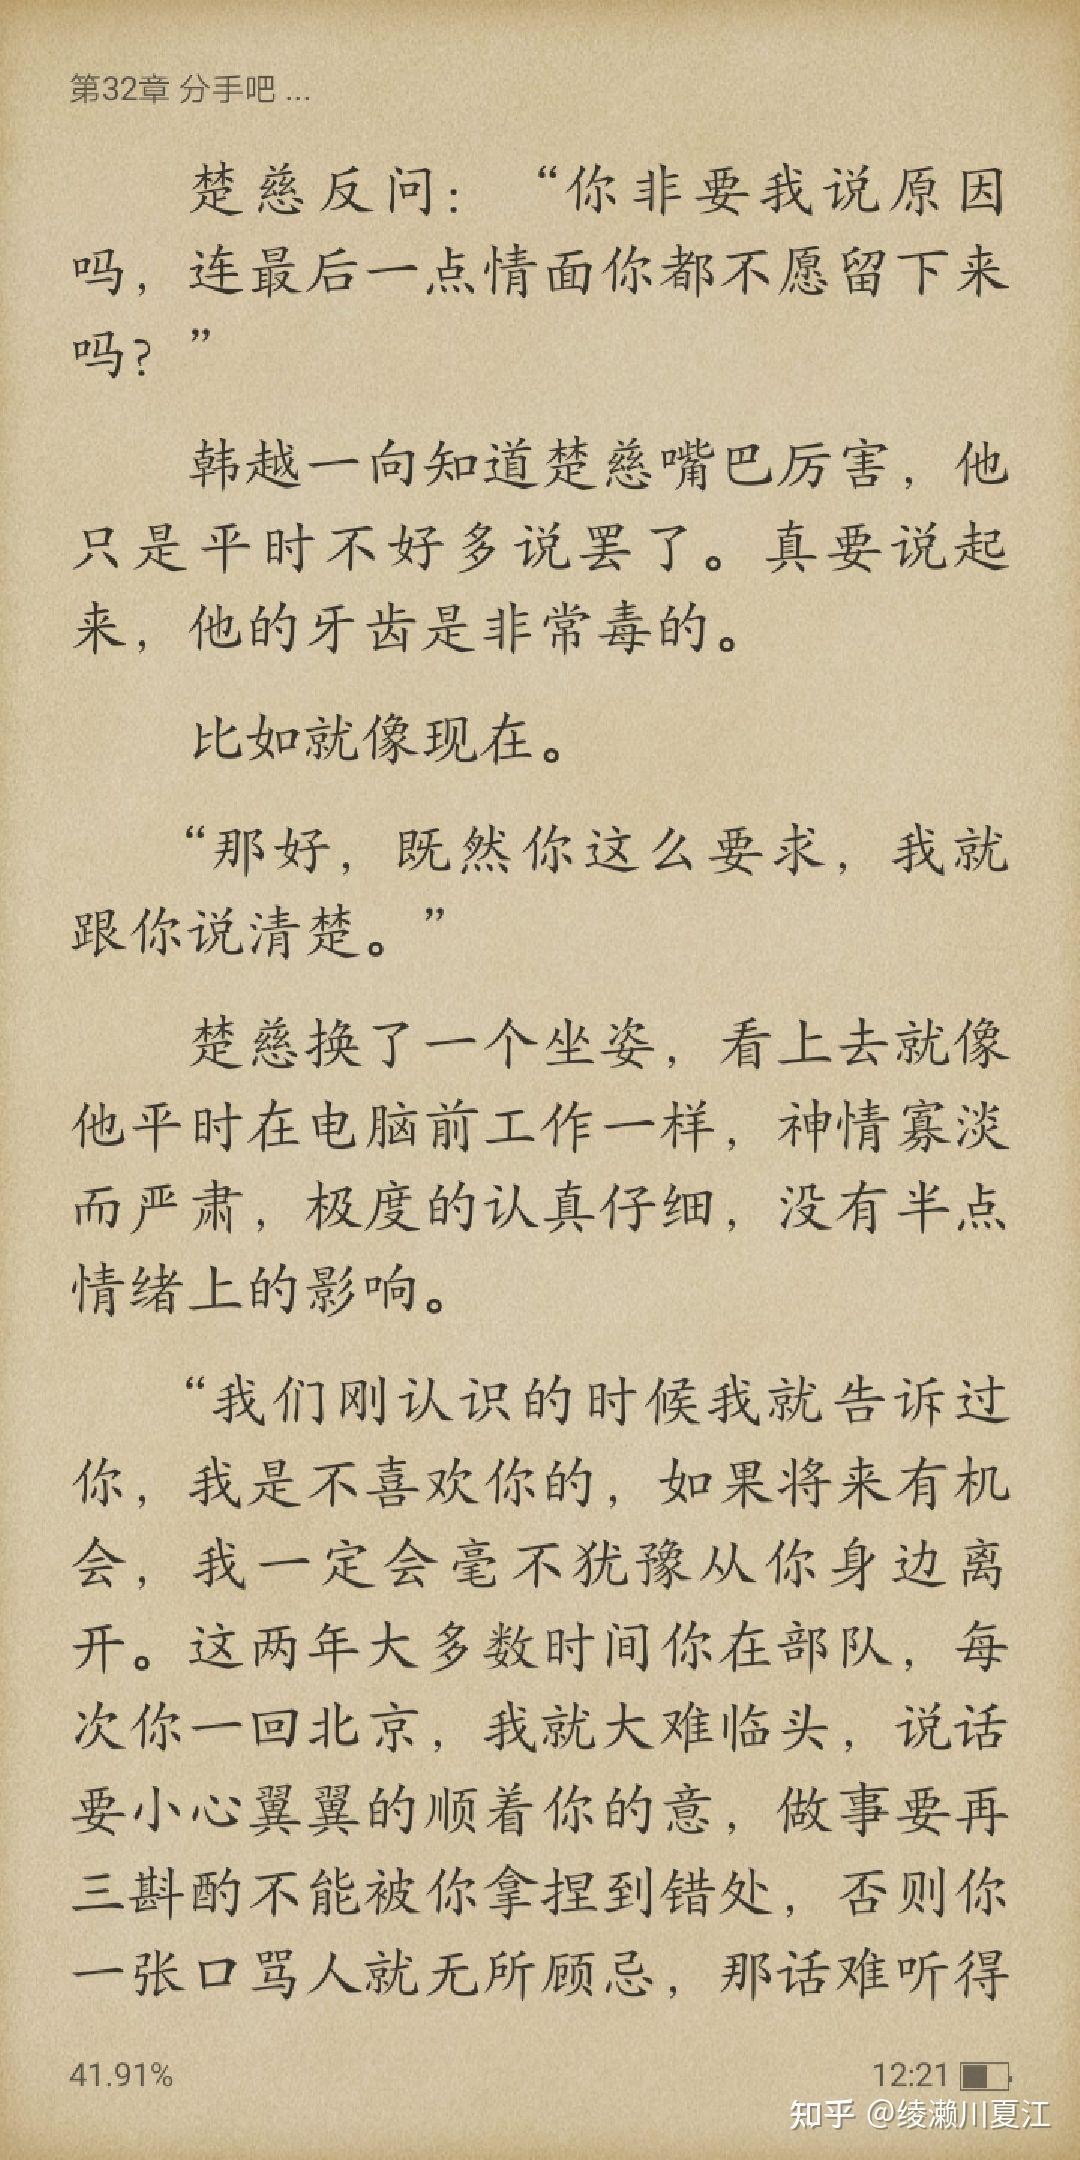 第32章 分手吧 ...
楚慈反问：“你非要我说原因
吗，连最后一点情面你都不愿留下来
吗？”
韩越一向知道楚慈嘴巴厉害，他
只是平时不好多说罢了。真要说起
来，他的牙齿是非常毒的。
比如就像现在。
“那好，既然你这么要求，我就
跟你说清楚。”
楚慈换了一个坐姿，看上去就像
他平时在电脑前工作一样，神情寡淡
而严肃，极度的认真仔细，没有半点
情绪上的影响。
“我们刚认识的时候我就告诉过
你，我是不喜欢你的，如果将来有机
会，我一定会毫不犹豫从你身边离
开。这两年大多数时间你在部队，每
次你一回北京，我就大难临头，说话
要小心翼翼的顺着你的意，做事要再
三斟酌不能被你拿捏到错处，否则你
一张口骂人就无所顾忌，那话难听得
41.91%
12:21
知乎 @绫濑川夏江